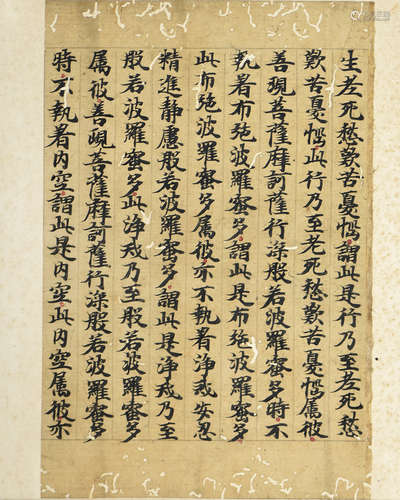 生老死愁歎苦憂惱謂此是行乃至老死愁
歎苦憂惱此行乃至老死愁歎苦憂惱属彼
善現菩薩摩訶薩行深般若波羅蜜多時不
執著布施波羅蜜多謂此是布施波羅蜜多
此布施波羅蜜多属彼亦不執著淨戒安忍
精進靜慮般若波羅蜜多謂此是淨戒乃至
般若波羅蜜多此淨戒乃至般若波羅蜜多
属彼善現菩薩摩訶薩行深般若波羅蜜多
時不執著内空謂此是内空此内空属彼亦